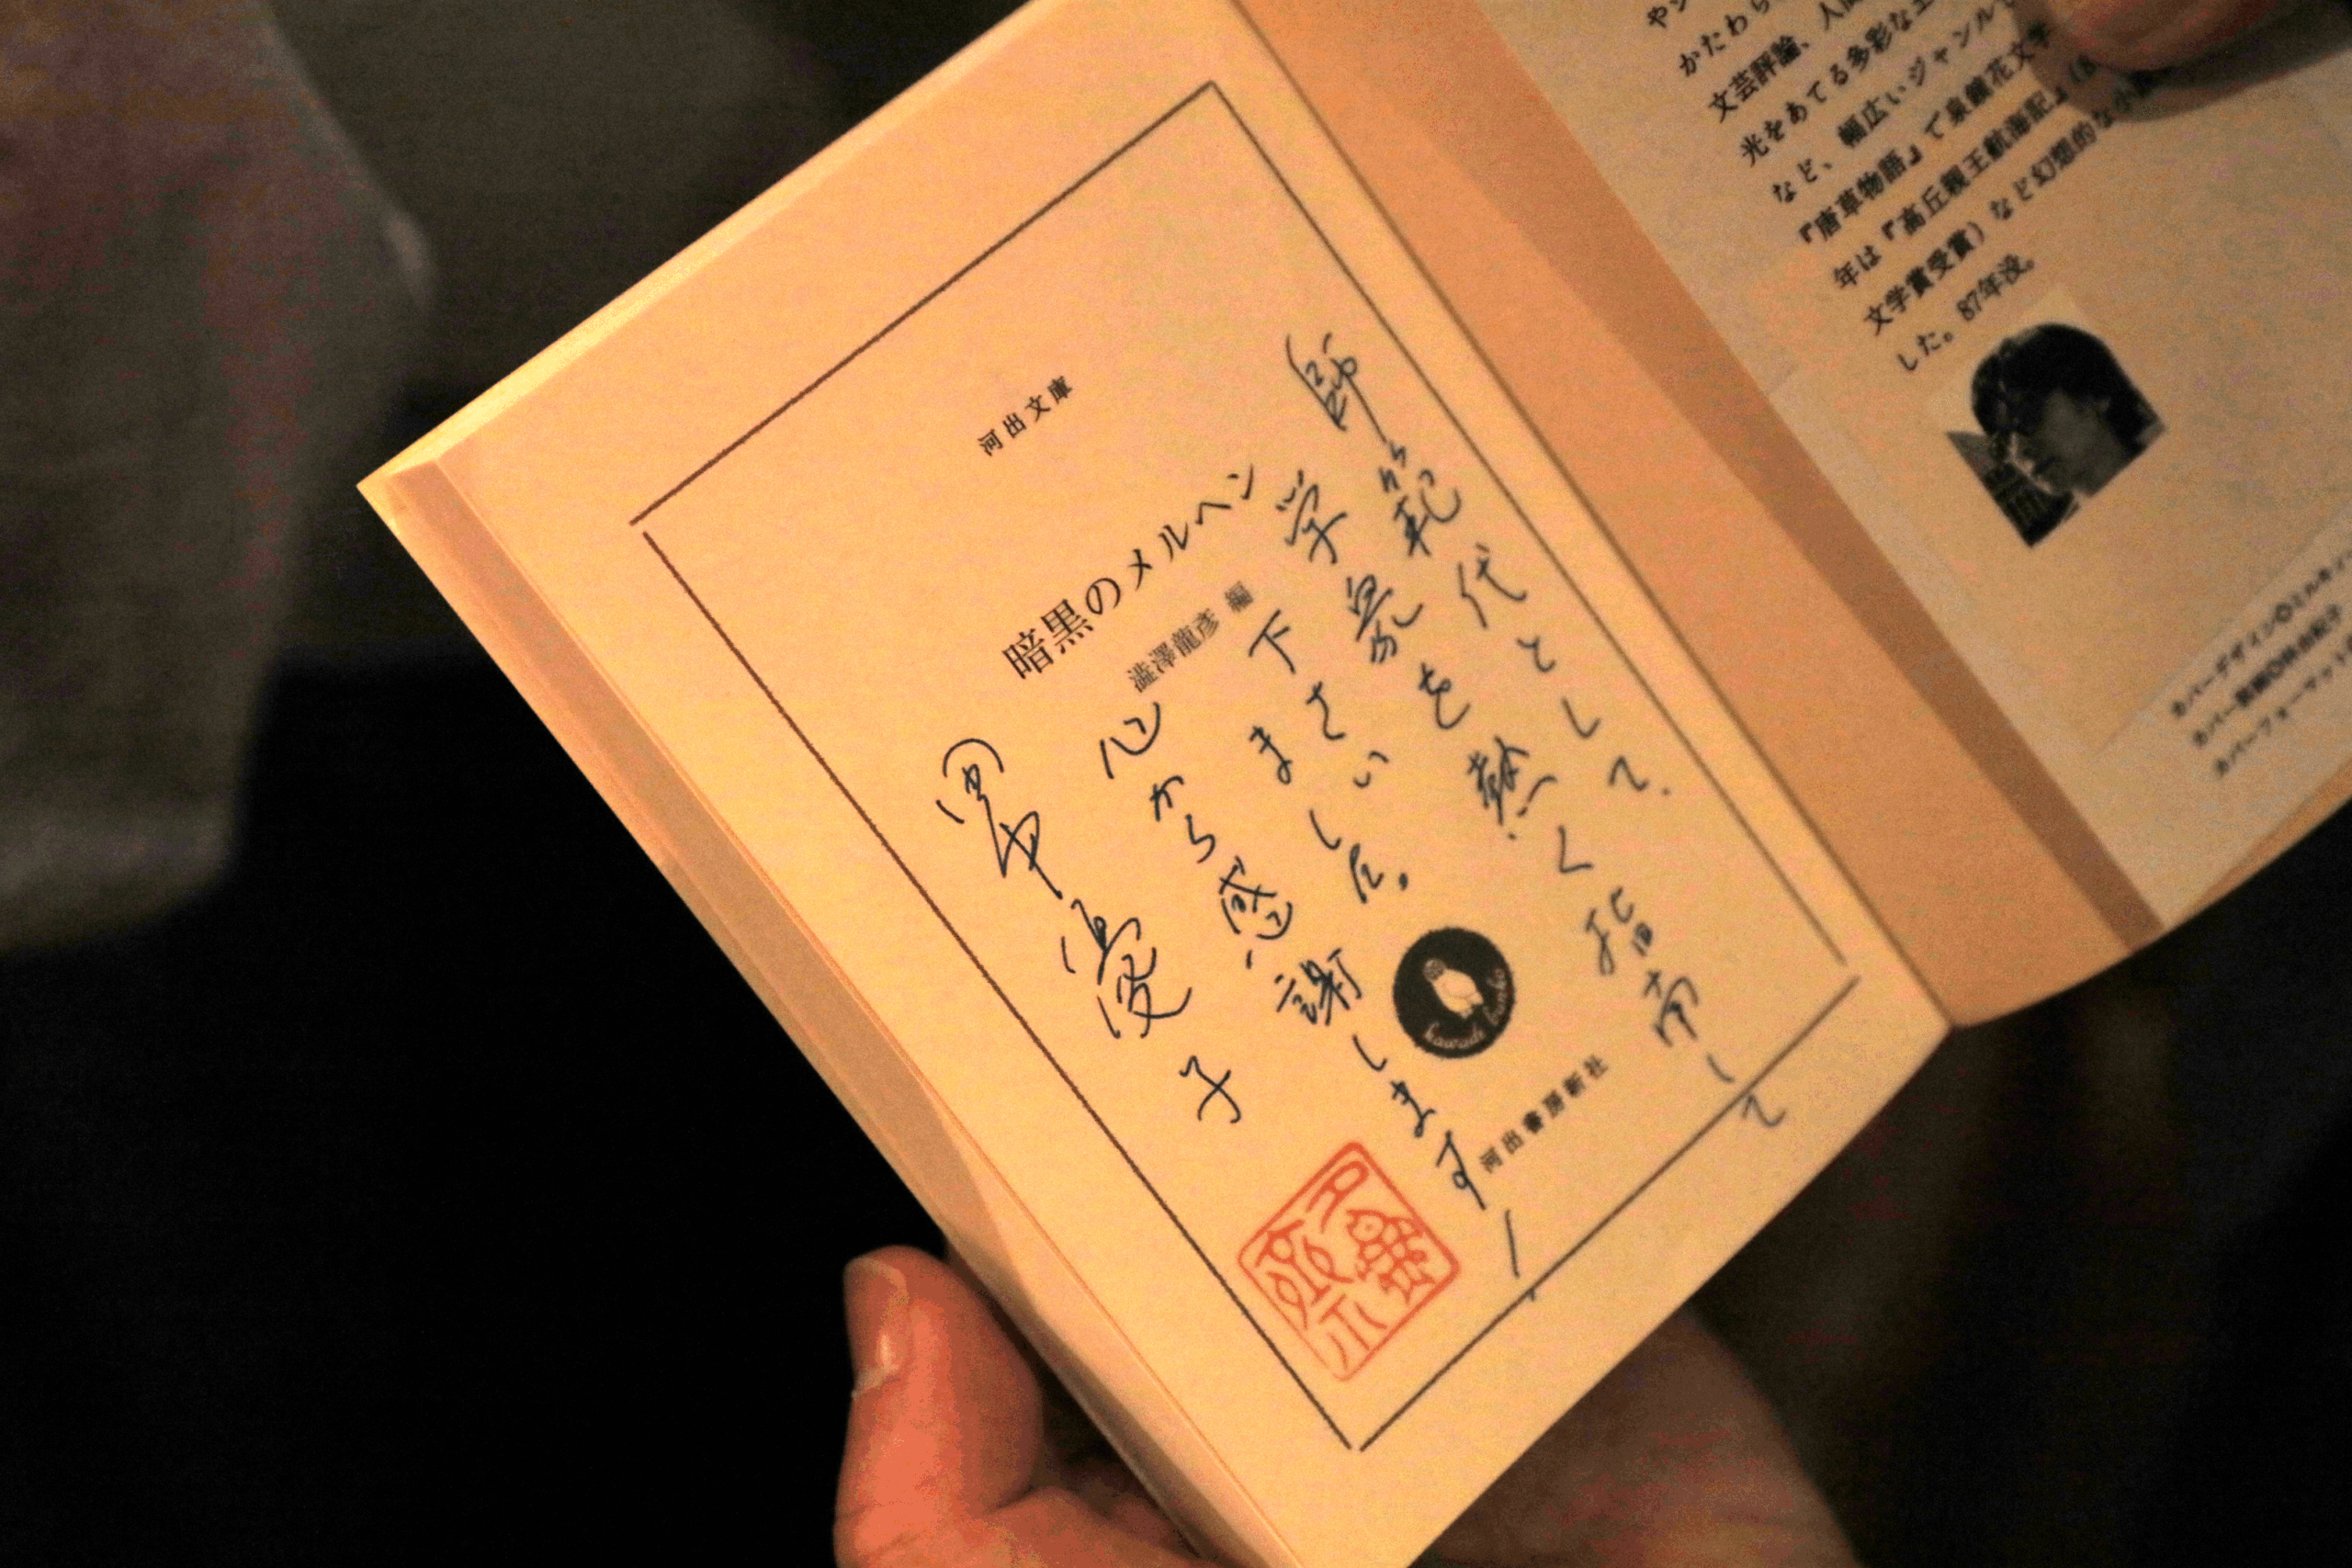 河出文庫
暗黒のメルヘン
澁澤龍彦 編
師範代として、
学衆を熱く指南して
下さいました。
心から感謝します!
田中優子
kawade bunko
河出書房新社
かたわら
文芸評論、人間
光をあてる多彩なエ
など、幅広いジャンルで
『唐草物語』で泉鏡花文学
年は『高丘親王航海記』(
文学賞受賞)など幻想的な小
した。87年没。
カバーデザイン◎ミルキィ
カバーフォーマット